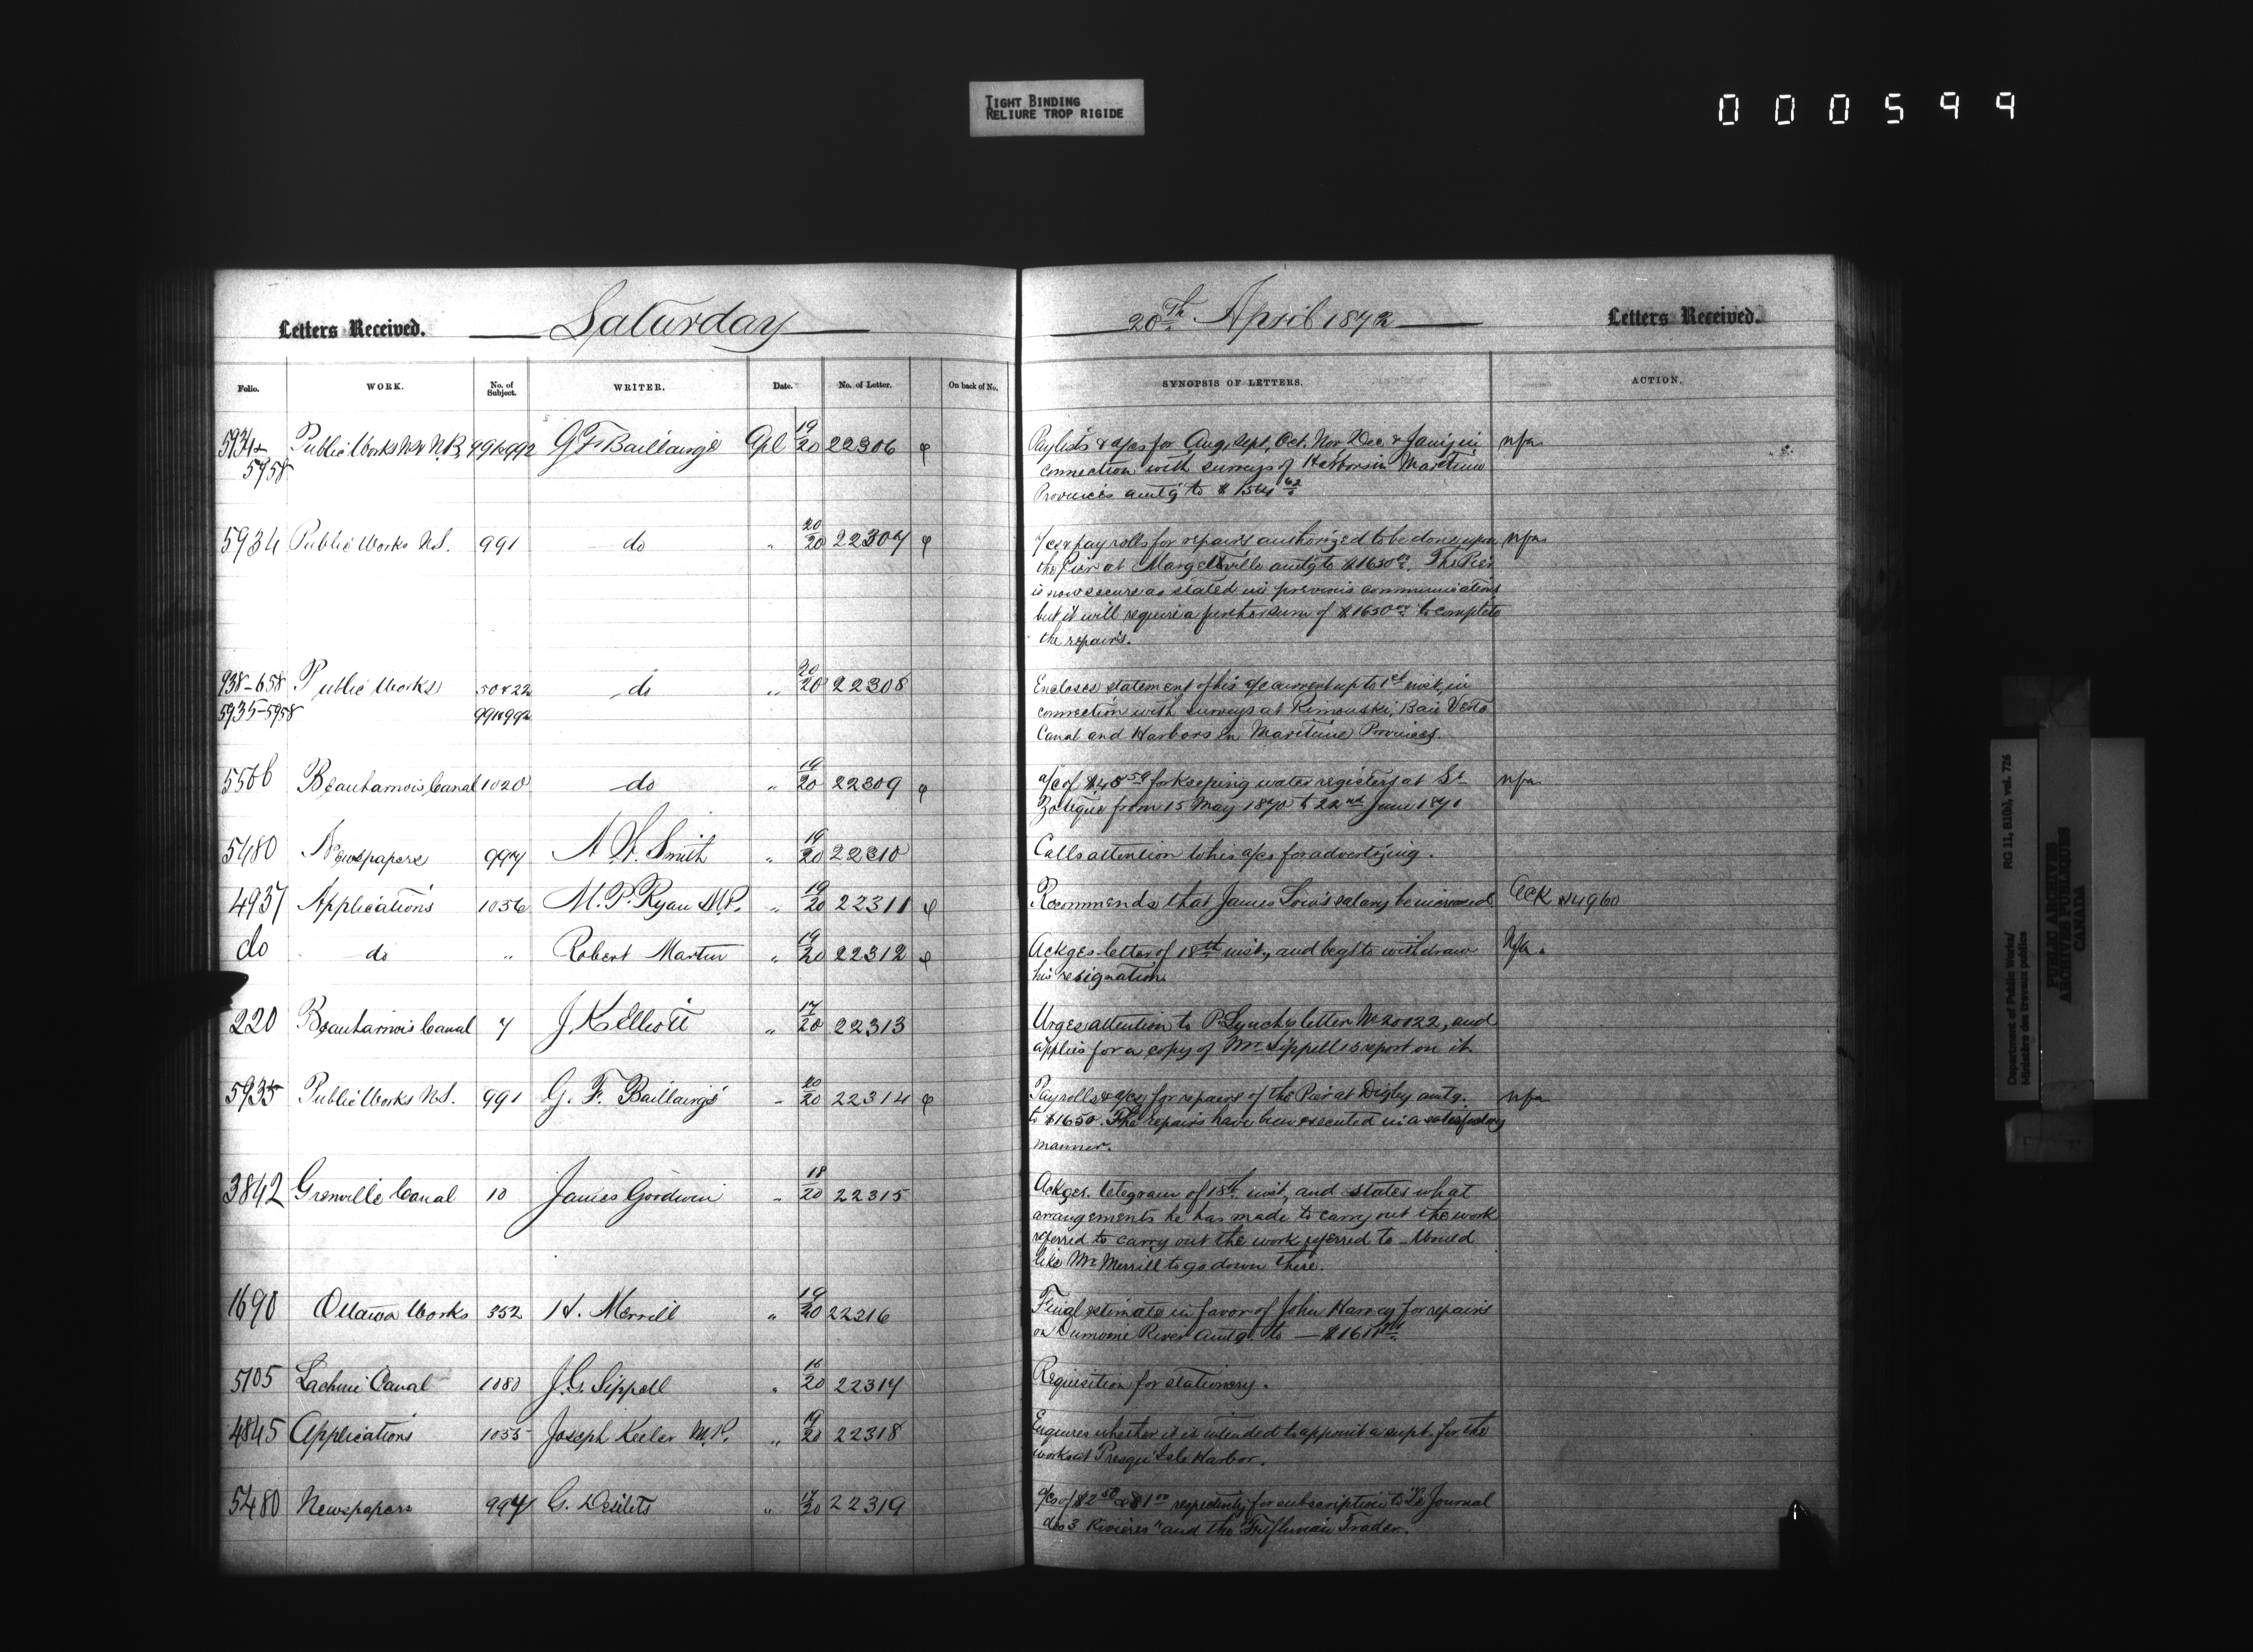 TIGHT BINDING
RELIURE TROP RIGIDE
000599
Letters Received. Saturday 20th April 1872 Letters Received.
Folio. WORK. No. of Subject. WRITER. Date. No. of Letter. On back of No. SYNOPSIS OF LETTERS. ACTION.
5934 & Public Works NS & N.B. 991 & 992 G F Baillairgé Apl 19/20 22306 φ Paylists & a/cs for Aug, Sept, Oct. Nov Dec & Jany in nfa
5958 connection with surveys of Harbors in Maritime
Provinces amtg to $ 1564 62
5934 Public Works N.S. 991 do " 20/20 22307 φ a/cs & pay rolls for repairs authorized to be done upon nfa
the Pier at Margetville amtg to $1650 00. The Pier
is now secure as stated in previous communications
but it will require a further sum of $1650 00 to complete
the repairs.
938-658 Public Works 50 & 22 do " 20/20 22308 Encloses statement of his a/c current up to 1st inst, in
5935-5958 991 & 992 connection with surveys at Rimouski, Baie Verte
Canal and Harbors in Maritime Provinces.
5566 Beauharnois Canal 1020 do " 19/20 22309 φ a/c of $45 59 for keeping water registers at St
Zotique from 15 May 1870 to 22nd June 1871
5480 Newspapers 997 A H. Smith " 19/20 22310 Calls attention to his a/cs for advertizing.
4937 Applications 1056 M. P. Ryan M.P. " 19/20 22311 φ Recommends that James Low's salary be increased. Ack 14960
do do " Robert Martin " 19/20 22312 φ Ackges letter of 18th inst., and begs to withdraw Nfa.
his resignation.
220 Beauharnois Canal 7 J. K Elliott " 17/20 22313 Urges attention to P. Lynch's letter No 20122, and
applies for a copy of Mr Sippell's report on it.
5935 Public Works N.S. 991 G. F. Baillairgé " 20/20 22314 φ Payrolls & a/cs for repairs of the Pier at Digby amtg. nfa
to $1650. The repairs have been executed in a satisfactory
manner.
3842 Grenville Canal 10 James Goodwin " 18/20 22315 Ackges. telegram of 18th inst, and states what
arrangements he has made to carry out the work
referred to carry out the work referred to - Would
like Mr Merrill to go down there.
1690 Ottawa Works 352 H. Merrill " 19/20 22316 Final estimate in favor of John Harvey for repairs
on Dumoine River amtg. to —
5105 Lachine Canal 1080 J. G. Sippell " 16/20 22317 Requisition for stationery.
4845 Applications 1055 Joseph Keeler M.P. " 19/20 22318 Enquires whether it is intended to appoint a supt. for the
works at Presqu'Isle Harbor.
5480 Newspapers 997 G. Desilets " 17/20 22319 a/cs of $2 50 & $1 00 respectively for subscription to "Le Journal
des 3 Rivières" and the Trifluvian Trader.
Department of Public Works/ RG 11, B1(b), vol. 726
Ministère des travaux publics
PUBLIC ARCHIVES
ARCHIVES PUBLIQUES
CANADA